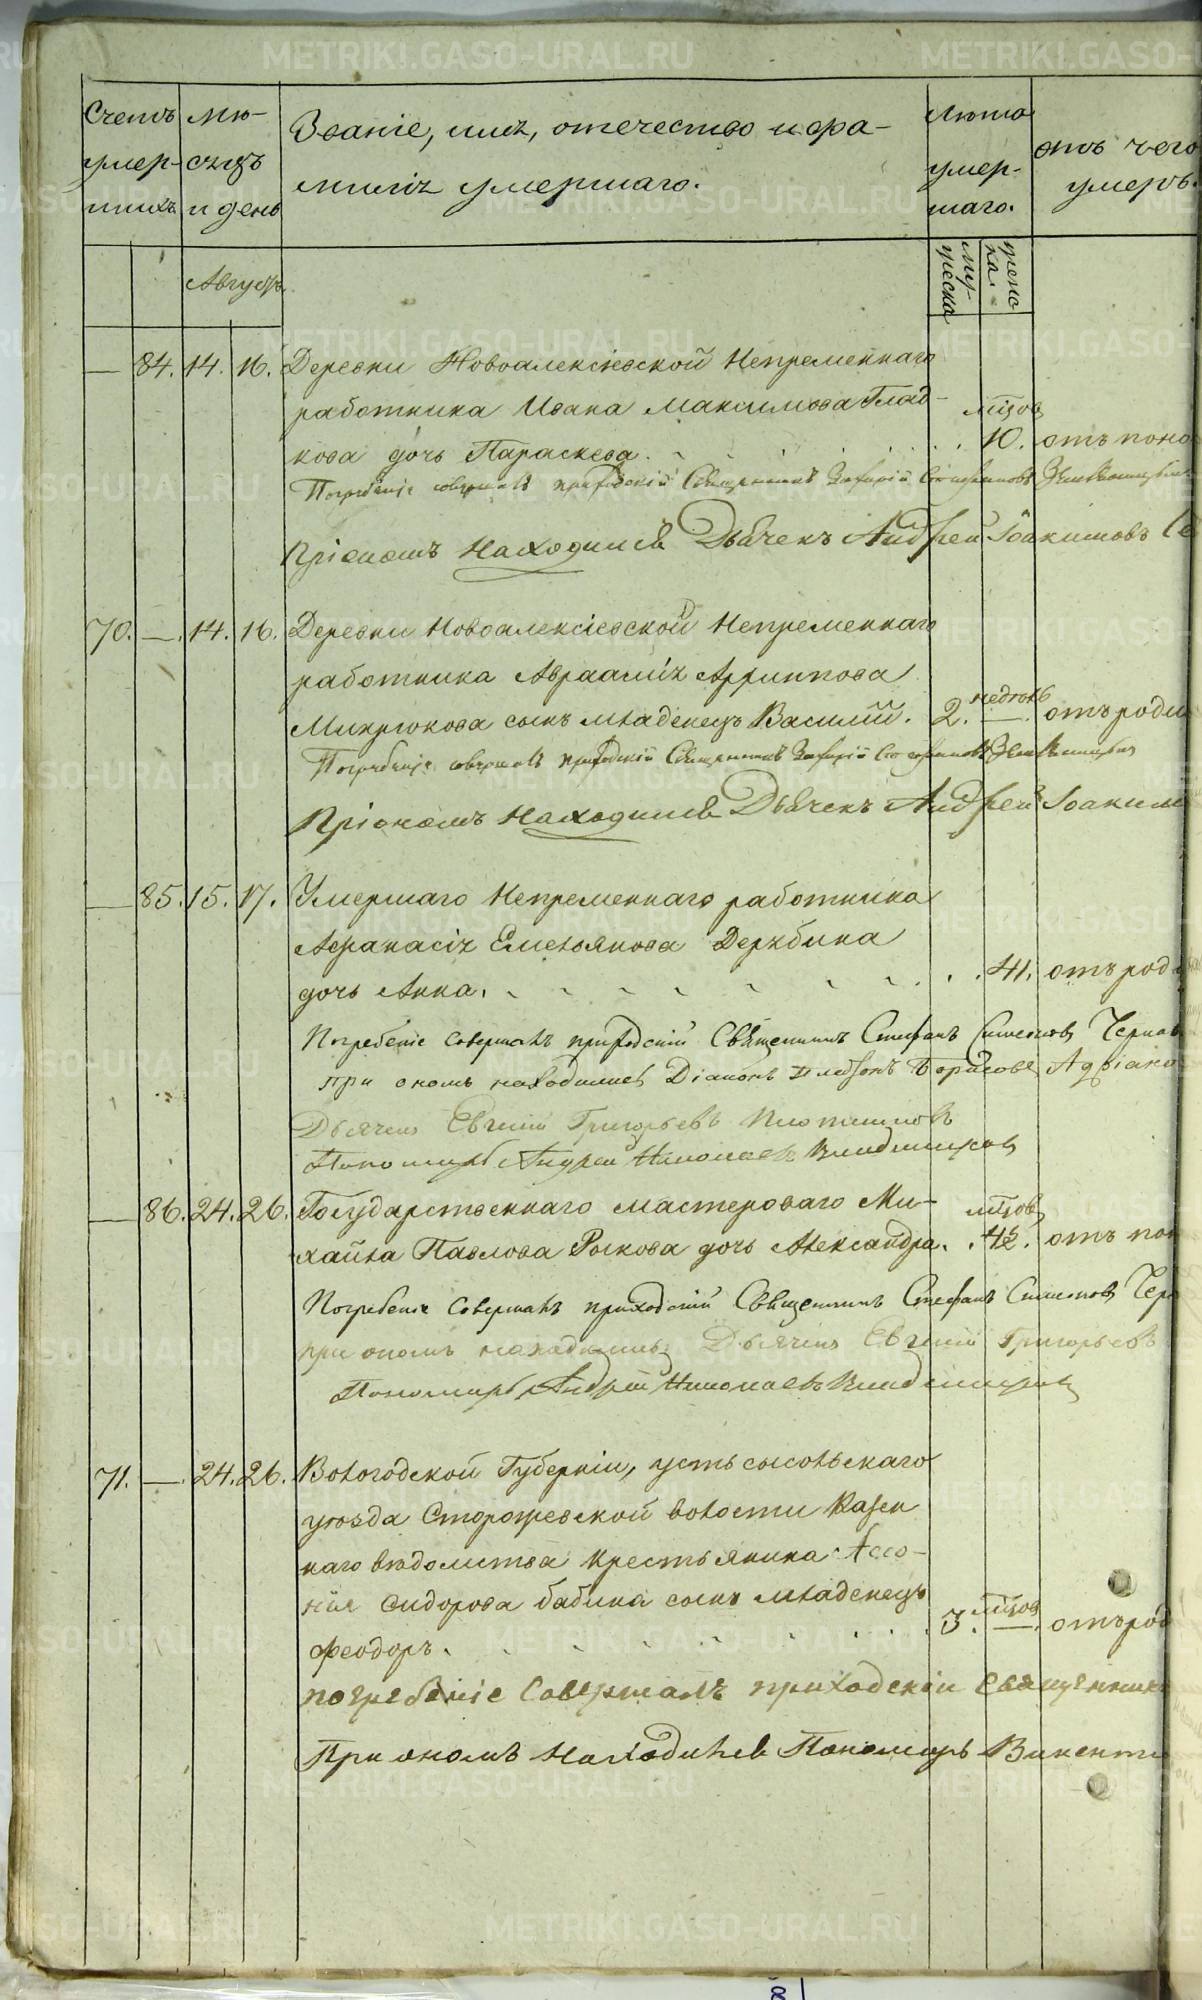 Счетъ умер- шихъ
мѣ- сяцъ и день
Званіе, имя, отечество и фа-
милія умершаго.
Лѣта умер- шаго.
отъ чего умеръ.
Августъ.
мужеска
женска.
— 84. 14. 16. Деревни Новоалексіевской Непременнаго
работника Ивана Максимова Глад-
кова дочь Параскева. мѣсѧцовъ 10. отъ поно
Погребеніе совершалъ приходскій Священникъ
При ономъ Находился Дьячекъ Андрей Іоакимовъ
70. — 14. 16. Деревни Новоалексіевской Непременнаго
работника Авраамія Архиппова
Микрюкова сынъ младенецъ Василій. 2. недѣль —. отъ роди
Погребеніе совершалъ приходскій Священникъ
При ономъ Находился Дьячекъ Андрей Іоаким
— 85. 15. 17. Умершаго Непременнаго работника
Афанасія Емельянова Дерябина
дочь Анна. 41. отъ род
Погребеніе совершалъ приходскій Священникъ Стефанъ Симеоновъ Черно
при ономъ находились Діаконъ Платонъ Борисовъ Адріано
Дьячекъ Евгеній Григорьевъ
Пономарь Андрей Николаевъ
— 86. 24. 26. Государственнаго мастероваго Ми-
хаила Павлова Рыкова дочь Александра. мѣсѧцовъ отъ пон
Погребеніе Совершалъ приходскій Священникъ Стефанъ Симеоновъ Чер
при ономъ находились Дьячекъ Евгеній Григорьевъ
Пономарь Андрей Николаевъ
71. — 24. 26. Вологодской Губерніи, усть сысольскаго
уѣзда Сторожевской волости Казен
наго вѣдомства крестьянина
Сидорова бабина сынъ младенецъ
Феодоръ. 3. мѣсѧцов —. отъ род
погребеніе Совершалъ приходскіи Священникъ
При ономъ Находился Пономарь Викенти
METRIKI.GASO-URAL.RU